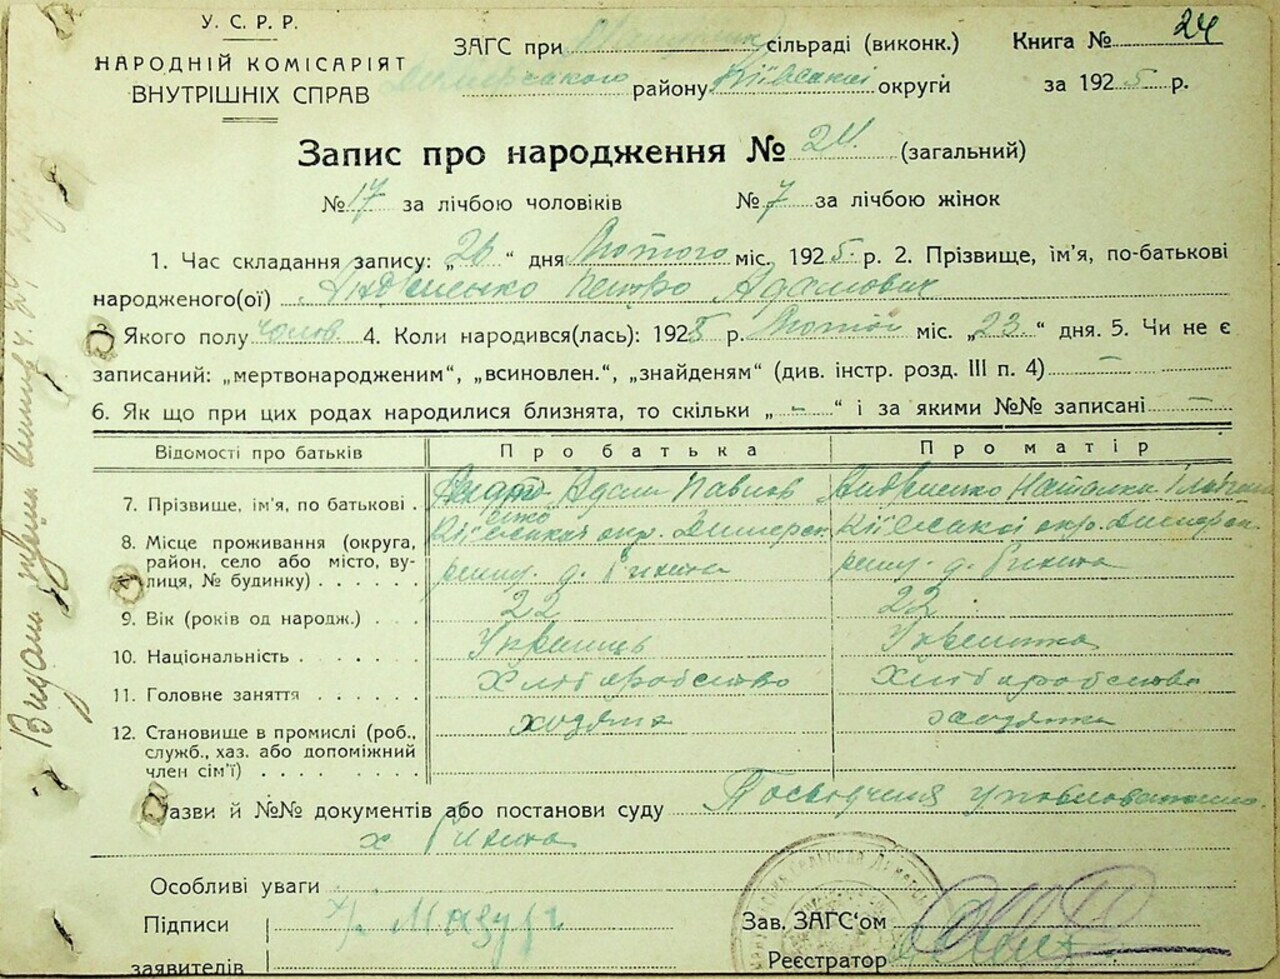 У. С. Р. Р.
НАРОДНІЙ КОМІСАРІЯТ
ВНУТРІШНІХ СПРАВ
ЗАГС при сільраді (виконк.)
Димерського району Київської округи
Книга № 24
за 1925 р.
Запис про народження № 24 (загальний)
№ 17 за лічбою чоловіків № 7 за лічбою жінок
1. Час складання запису: „26“ дня Лютого міс. 1925 р. 2. Прізвище, ім'я, по-батькові
народженого(ої) Петро Адамович
3. Якого полу чолов. 4. Коли народився(лась): 1925 р. Лютого міс. „23“ дня. 5. Чи не є
записаний: „мертвонародженим“, „всиновлен.“, „знайденям“ (див. інстр. розд. III п. 4) —
6. Як що при цих родах народилися близнята, то скільки „ - “ і за якими №№ записані —
Відомості про батьків Про батька Про матір
7. Прізвище, ім'я, по батькові . Адам Павлов Наталка
8. Місце проживання (округа, район, село або місто, вулиця, № будинку) . . . . . .
Київськая окр. Димерск. Київської окр. Димерск.
9. Вік (років од народж.) . . . 22 22
10. Національність . . . . . . Українець Українка
11. Головне заняття . . . . . . Хліборобство Хліборобство
12. Становище в промислі (роб., служб., хаз. або допоміжний член сім'ї) . . . . . . . .
хозяїн хозяйка
Назви й №№ документів або постанови суду Посвідчення уповноваженого
х
Особливі уваги
Підписи
заявителів
Мазур
Зав. ЗАГС'ом
Реєстратор
Видано